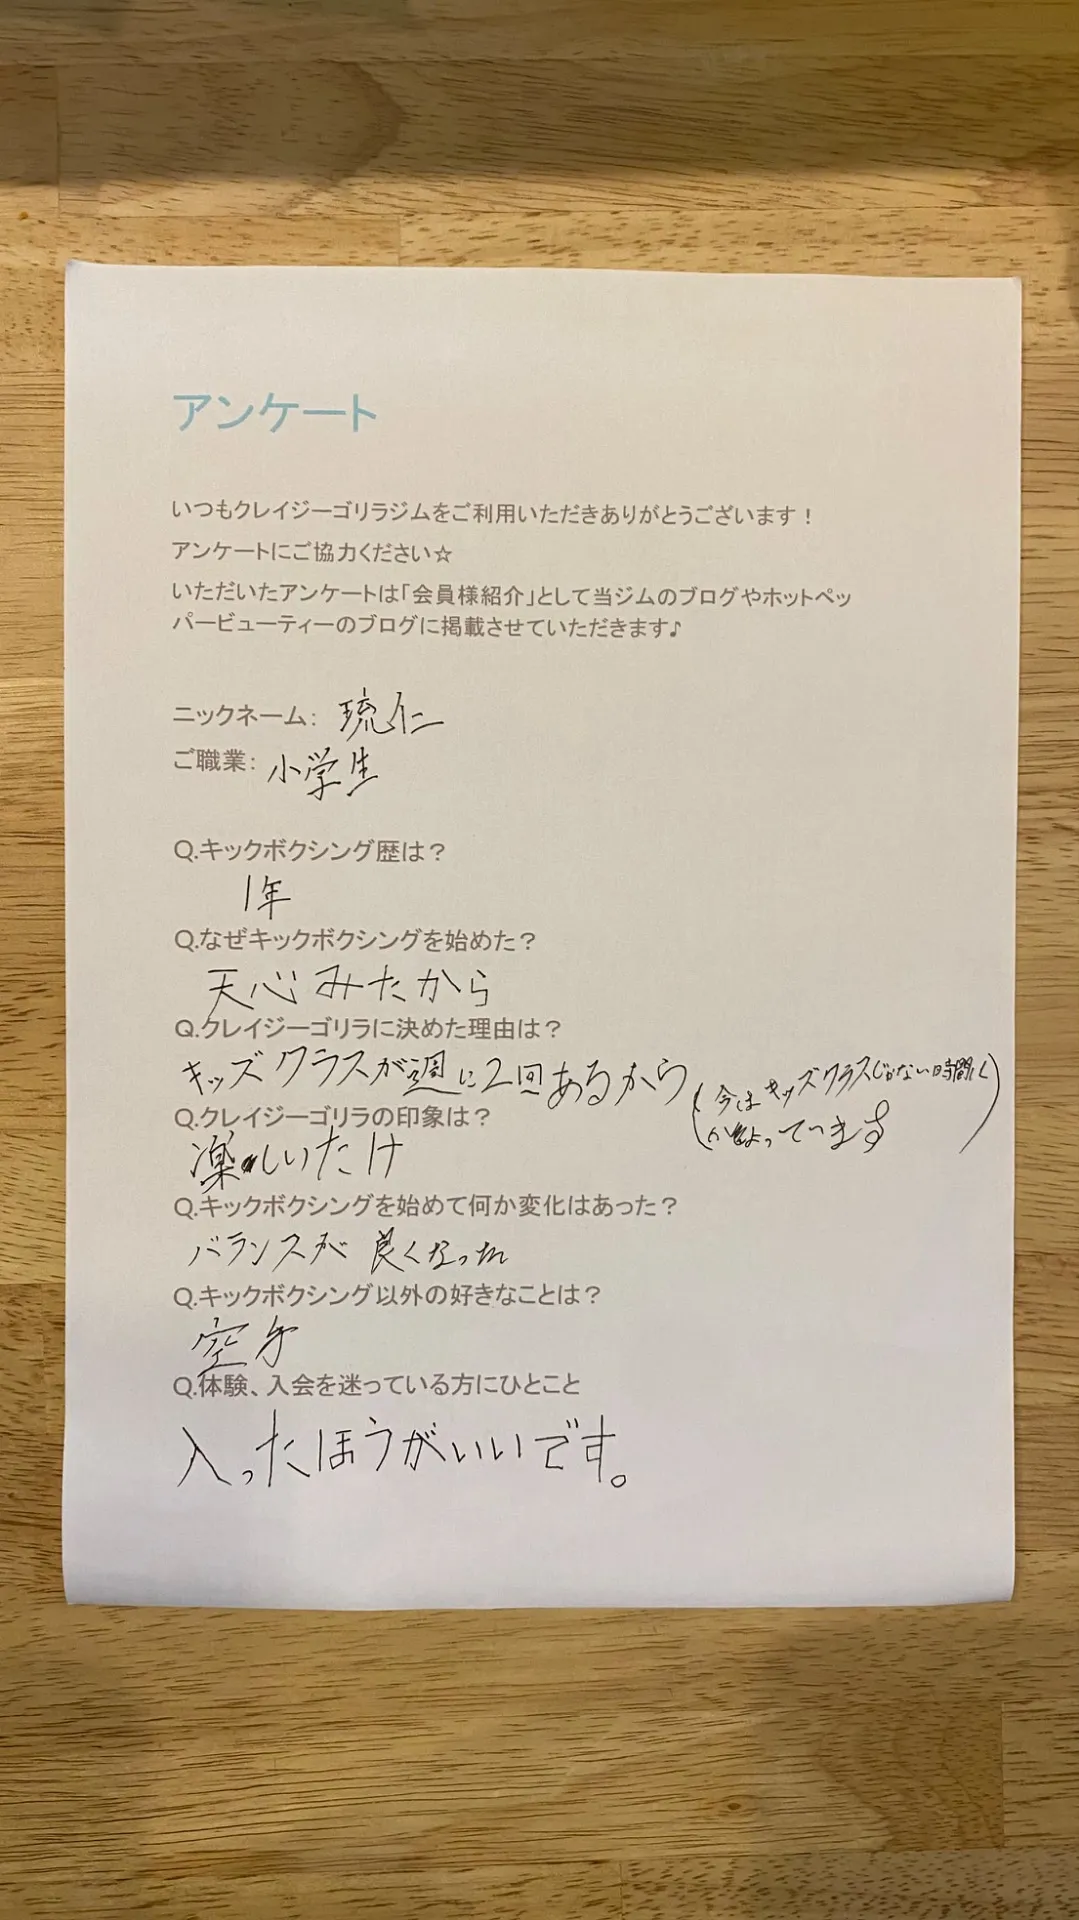 アンケート
いつもクレイジーゴリラジムをご利用いただきありがとうございます！
アンケートにご協力ください☆
いただいたアンケートは「会員様紹介」として当ジムのブログやホットペッ
パービューティーのブログに掲載させていただきます♪
ニックネーム： 琉仁
ご職業： 小学生
Q.キックボクシング歴は？
1年
Q.なぜキックボクシングを始めた？
天心みたから
Q.クレイジーゴリラに決めた理由は？
キッズクラスが週に2回あるから
(今はキッズクラスじゃない時間に
かよっています)
Q.クレイジーゴリラの印象は？
楽しいだけ
Q.キックボクシングを始めて何か変化はあった？
バランスが良くなった
Q.キックボクシング以外の好きなことは？
空手
Q.体験、入会を迷っている方にひとこと
入ったほうがいいです。